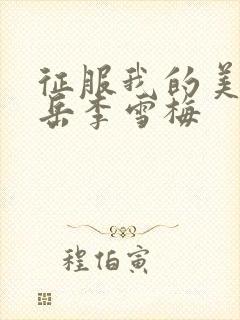 征服我的美
岳李雪梅
程伯寅